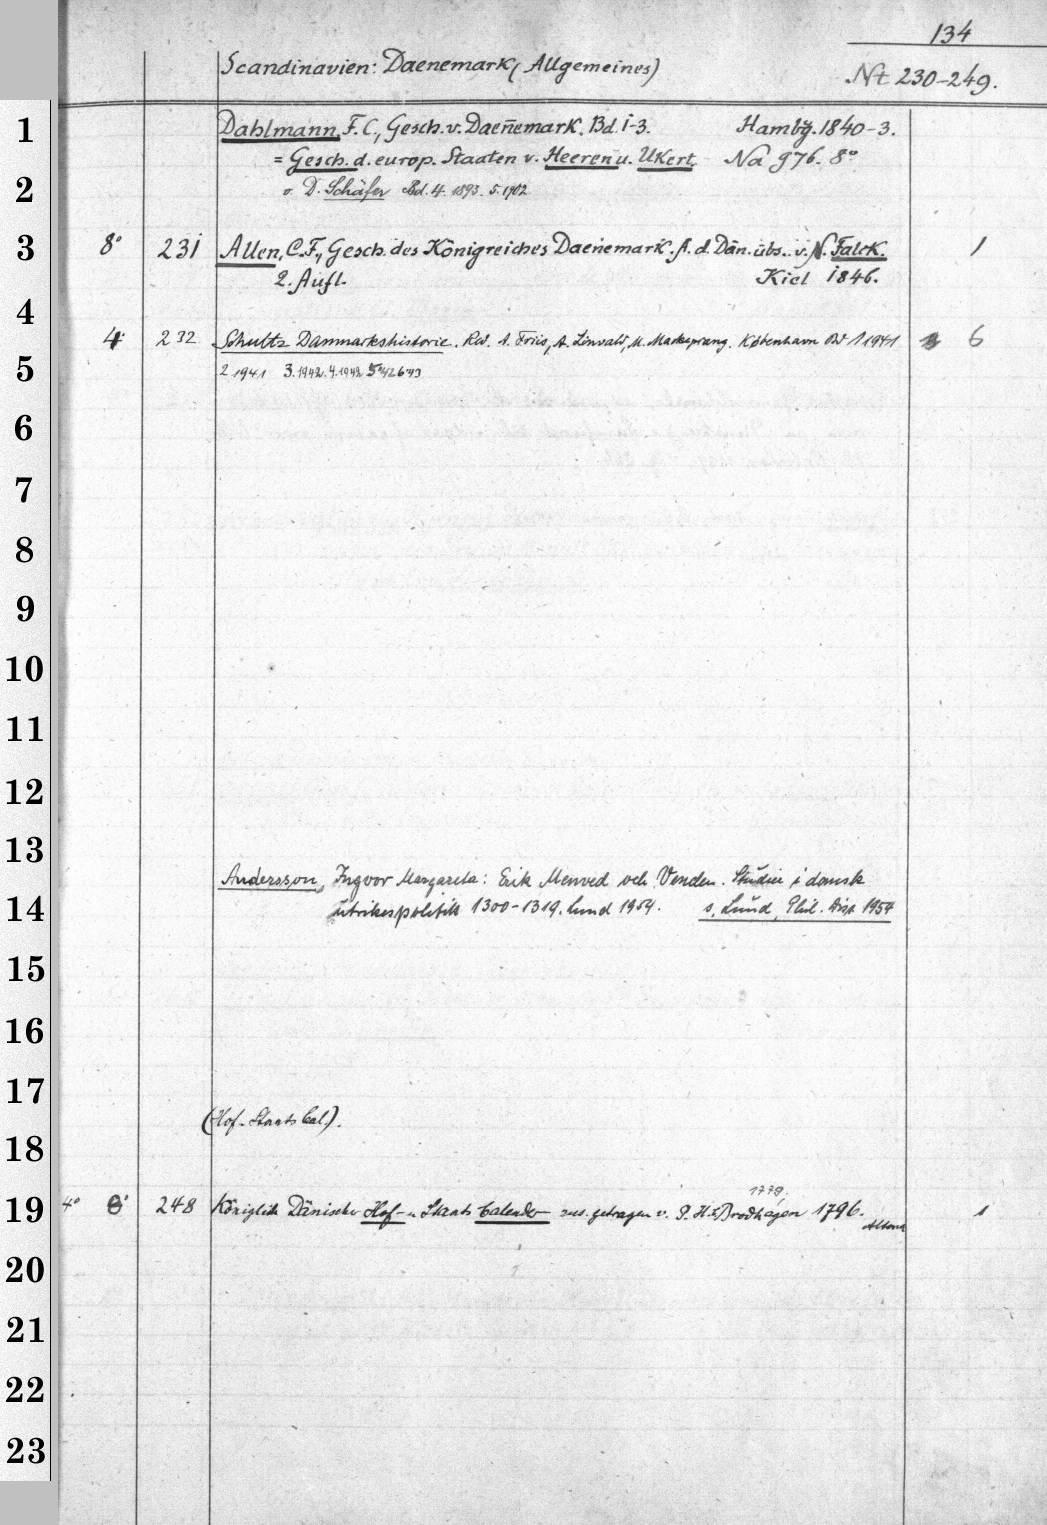 134
Scandinavien: Daenemark (Allgemeines)
Nt 230-249.
1
Dahlmann, F. C., Gesch. v. Daenemark. Bd. 1-3. Hambg. 1840-3.
= Gesch. d. europ. Staaten v. Heeren u. Ukert. Na 976. 8°
2
v. D. Schäfer Bd. 4. 1893. 5. 1902
3
8° 231 Allen, C. F., Gesch. des Königreiches Daenemark. A. d. Dän. übs. v. N. Falck. 1
2. Aufl. Kiel 1846.
4
4° 232 Schultz Danmarkshistorie. Red. A. Friis, A. Linvald, M. Mackeprang. København Bd 1 1941 6
5
2 1941 3. 1942. 4. 1942 5 1942 6 43
6
7
8
9
10
11
12
13
Andersson, Ingvor Margareta: Erik Menved och Venden. Studier i dansk
14
utrikespolitik 1300-1319. Lund 1954. s. Lund, Phil. Diss. 1954
15
16
17
(Hof- Staats Cal.).
18
1779.
19
4° 8° 248 Königlich Dänischer Hof- u. Staats Calender zus. getragen v. P. H. Brodhagen 1796. 1
Altona
20
21
22
23